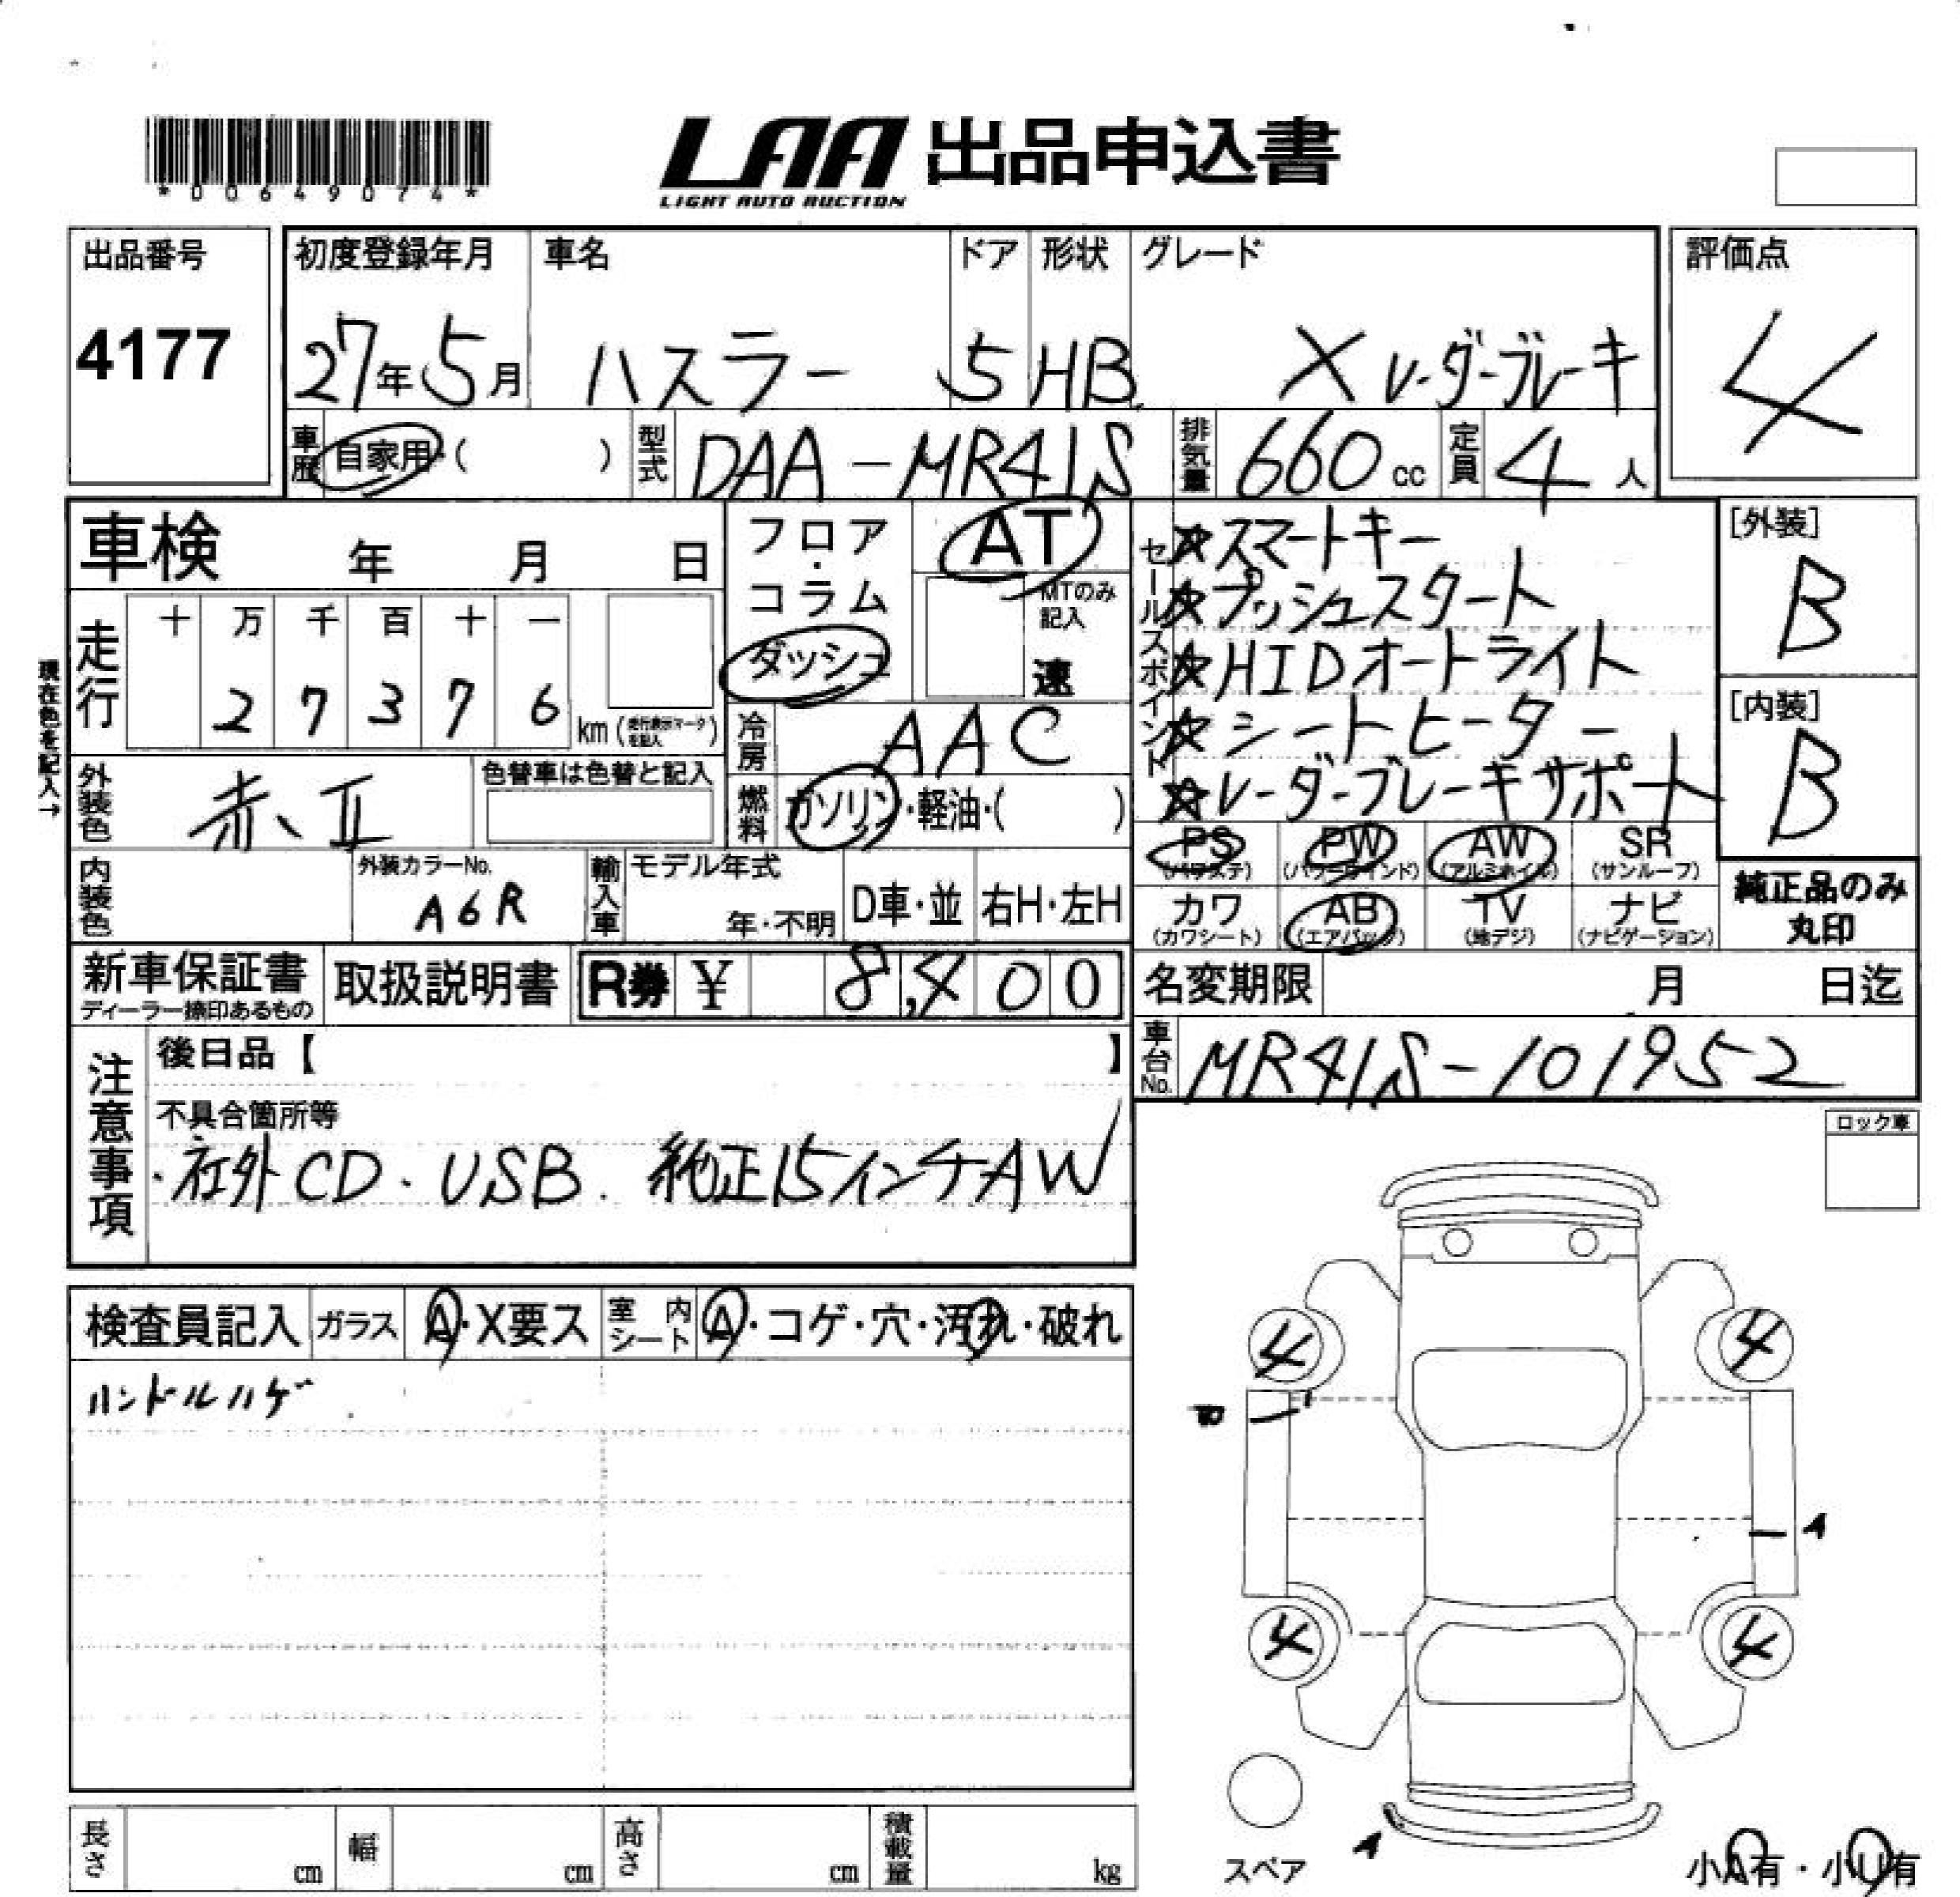 *00649074*
LAA 出品申込書
LIGHT AUTO AUCTION
出品番号
4177
初度登録年月
27年5月
車名
ハスラー
ドア
5
形状
HB
グレード
X レーダーブレーキ
評価点
4
車歴
自家用・( )
型式
DAA-MR41S
排気量
660cc
定員
4人
車検 年 月 日
フロア・コラム
ダッシュ
AT
MTのみ記入
速
セールスポイント
☆スマートキー
☆プッシュスタート
☆HIDオートライト
☆シートヒーター
☆レーダーブレーキサポート
[外装]
B
[内装]
B
現在色を記入→
走行
十 万 千 百 十 一
2 7 3 7 6 km (走行表示マークを記入)
冷房
AAC
外装色
赤、II
色替車は色替と記入
燃料
ガソリン・軽油・( )
PS
(パワステ)
PW
(パワーウインド)
AW
(アルミホイル)
SR
(サンルーフ)
カワ
(カワシート)
AB
(エアバッグ)
TV
(地デジ)
ナビ
(ナビゲーション)
純正品のみ
丸印
内装色
外装カラーNo.
A6R
輸入車
モデル年式
年・不明
D車・並
右H・左H
新車保証書
ディーラー捺印あるもの
取扱説明書
R券 ¥ 8,400
名変期限 月 日迄
車台No.
MR41S-101952
注意事項
後日品【 】
不具合箇所等
・社外CD・USB. 純正15インチAW
ロック車
検査員記入
ガラス
A・X要ス
室内シート
A・コゲ・穴・汚れ・破れ
ハンドルハゲ
4
4
A
4
4
A
スペア
小A有・小U有
長さ cm
幅 cm
高さ cm
積載量 kg